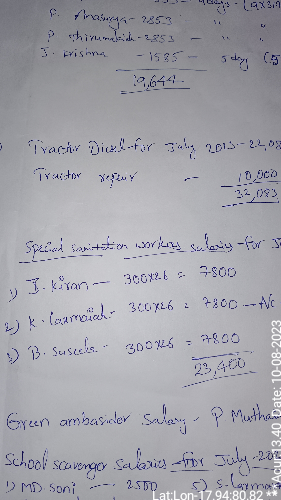 P. - 2853 - " "
P thirumalaiah - 2853 - " "
J. krishna - 1585 - 5 day
19,644
Tractor Diesel for July 2013 - 22,08
Tractor repair - 10,000
32,083
Special sanitation workers salaries - for J
1) J. Kiran - 300x26 = 7800
2) K. laxmaiah - 300x26 = 7800 - A/c
3) B. Suseela - 300x26 = 7800
23,400
Green ambasidor Salary - P Mutha
School scavenger salaries - for July - 20
1) MD Soni - 2500 5) S. laxma
Lat:Lon-17.94:80.82 ** Acu:13.40 Date: 10-08-2023